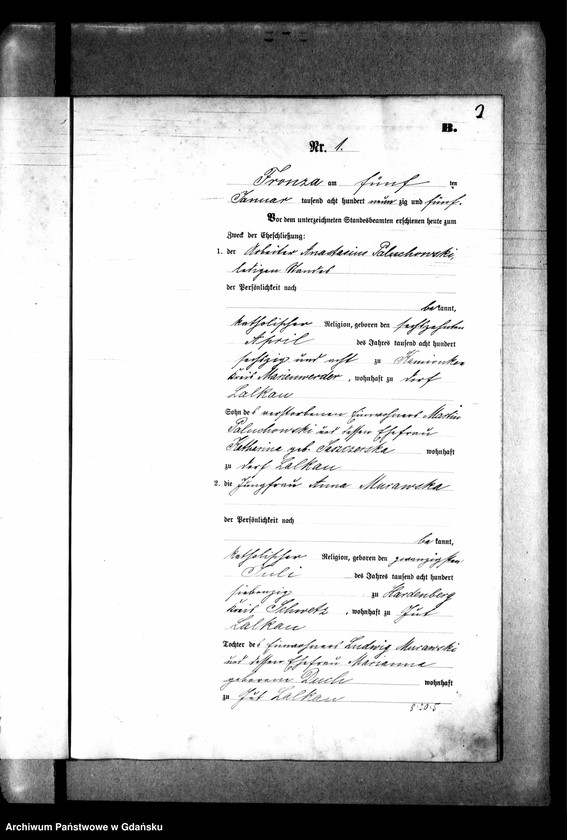 2
B.
Nr. 1.
Fronza am fünf ten
Januar tausend acht hundert neun zig und fünf.
Vor dem unterzeichneten Standesbeamten erschienen heute zum
Zweck der Eheschließung:
1. der Arbeiter Anastasius Paluchowski,
ledigen Standes
der Persönlichkeit nach
be kannt,
katholischer Religion, geboren den sechszehnten
April des Jahres tausend acht hundert
sechszig und acht zu Kamionken
Kreis Marienwerder, wohnhaft zu Dorf
Lalkau
Sohn des verstorbenen Einwohners Martin
Paluchowski und dessen Ehefrau
Katharina geb. wohnhaft
zu Dorf Lalkau
2. die Jungfrau Anna Murawska
der Persönlichkeit nach
be kannt,
katholischer Religion, geboren den zwanzigsten
Juli des Jahres tausend acht hundert
siebenzig zu Hardenberg
Kreis Schwetz, wohnhaft zu Gut
Lalkau
Tochter des Einwohners Ludwig Murawski
und dessen Ehefrau Marianna
geborene Duch wohnhaft
zu Gut Lalkau
Archiwum Państwowe w Gdańsku